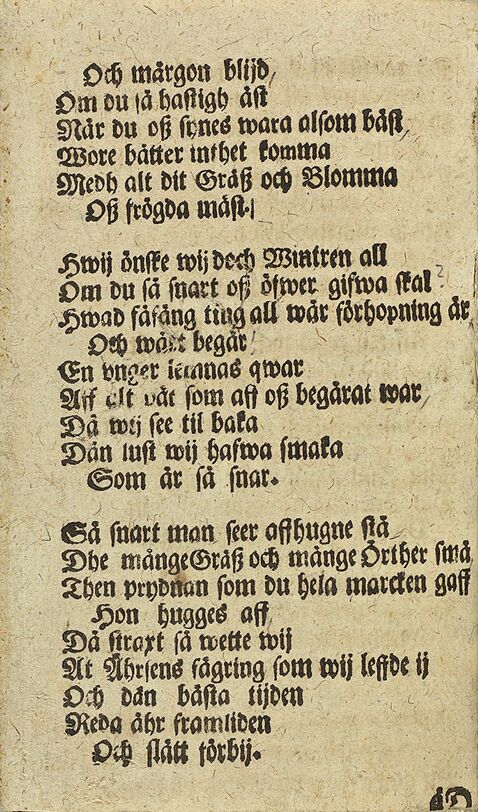 Och märgon blijd,
Om du så hastigh äst
När du oß synes wara alsom bäst,
Wore bätter inthet komma
Medh alt dit Gräß och Blomma
Oß frögda mäst.
Hwij önske wij doch Wintren all
Om du så snart oß öfwer gifwa skal?
Hwad fåfäng ting all wår förhopning är,
Och wårt begär!
En vnger lemnas qwar
Aff alt dät som aff oß begärat war,
Då wij see til baka
Dän lust wij hafwa smaka
Som är så snar.
Så snart man seer affhugne stå
Dhe månge Gräß och månge Örther små,
Then prydnan som du hela marcken gaff
Hon hugges aff
Då straxt så wette wij
At Åhrsens fägring som wij leffde ij
Och dän bästa tijden
Reda ähr framliden
Och slätt förbij.